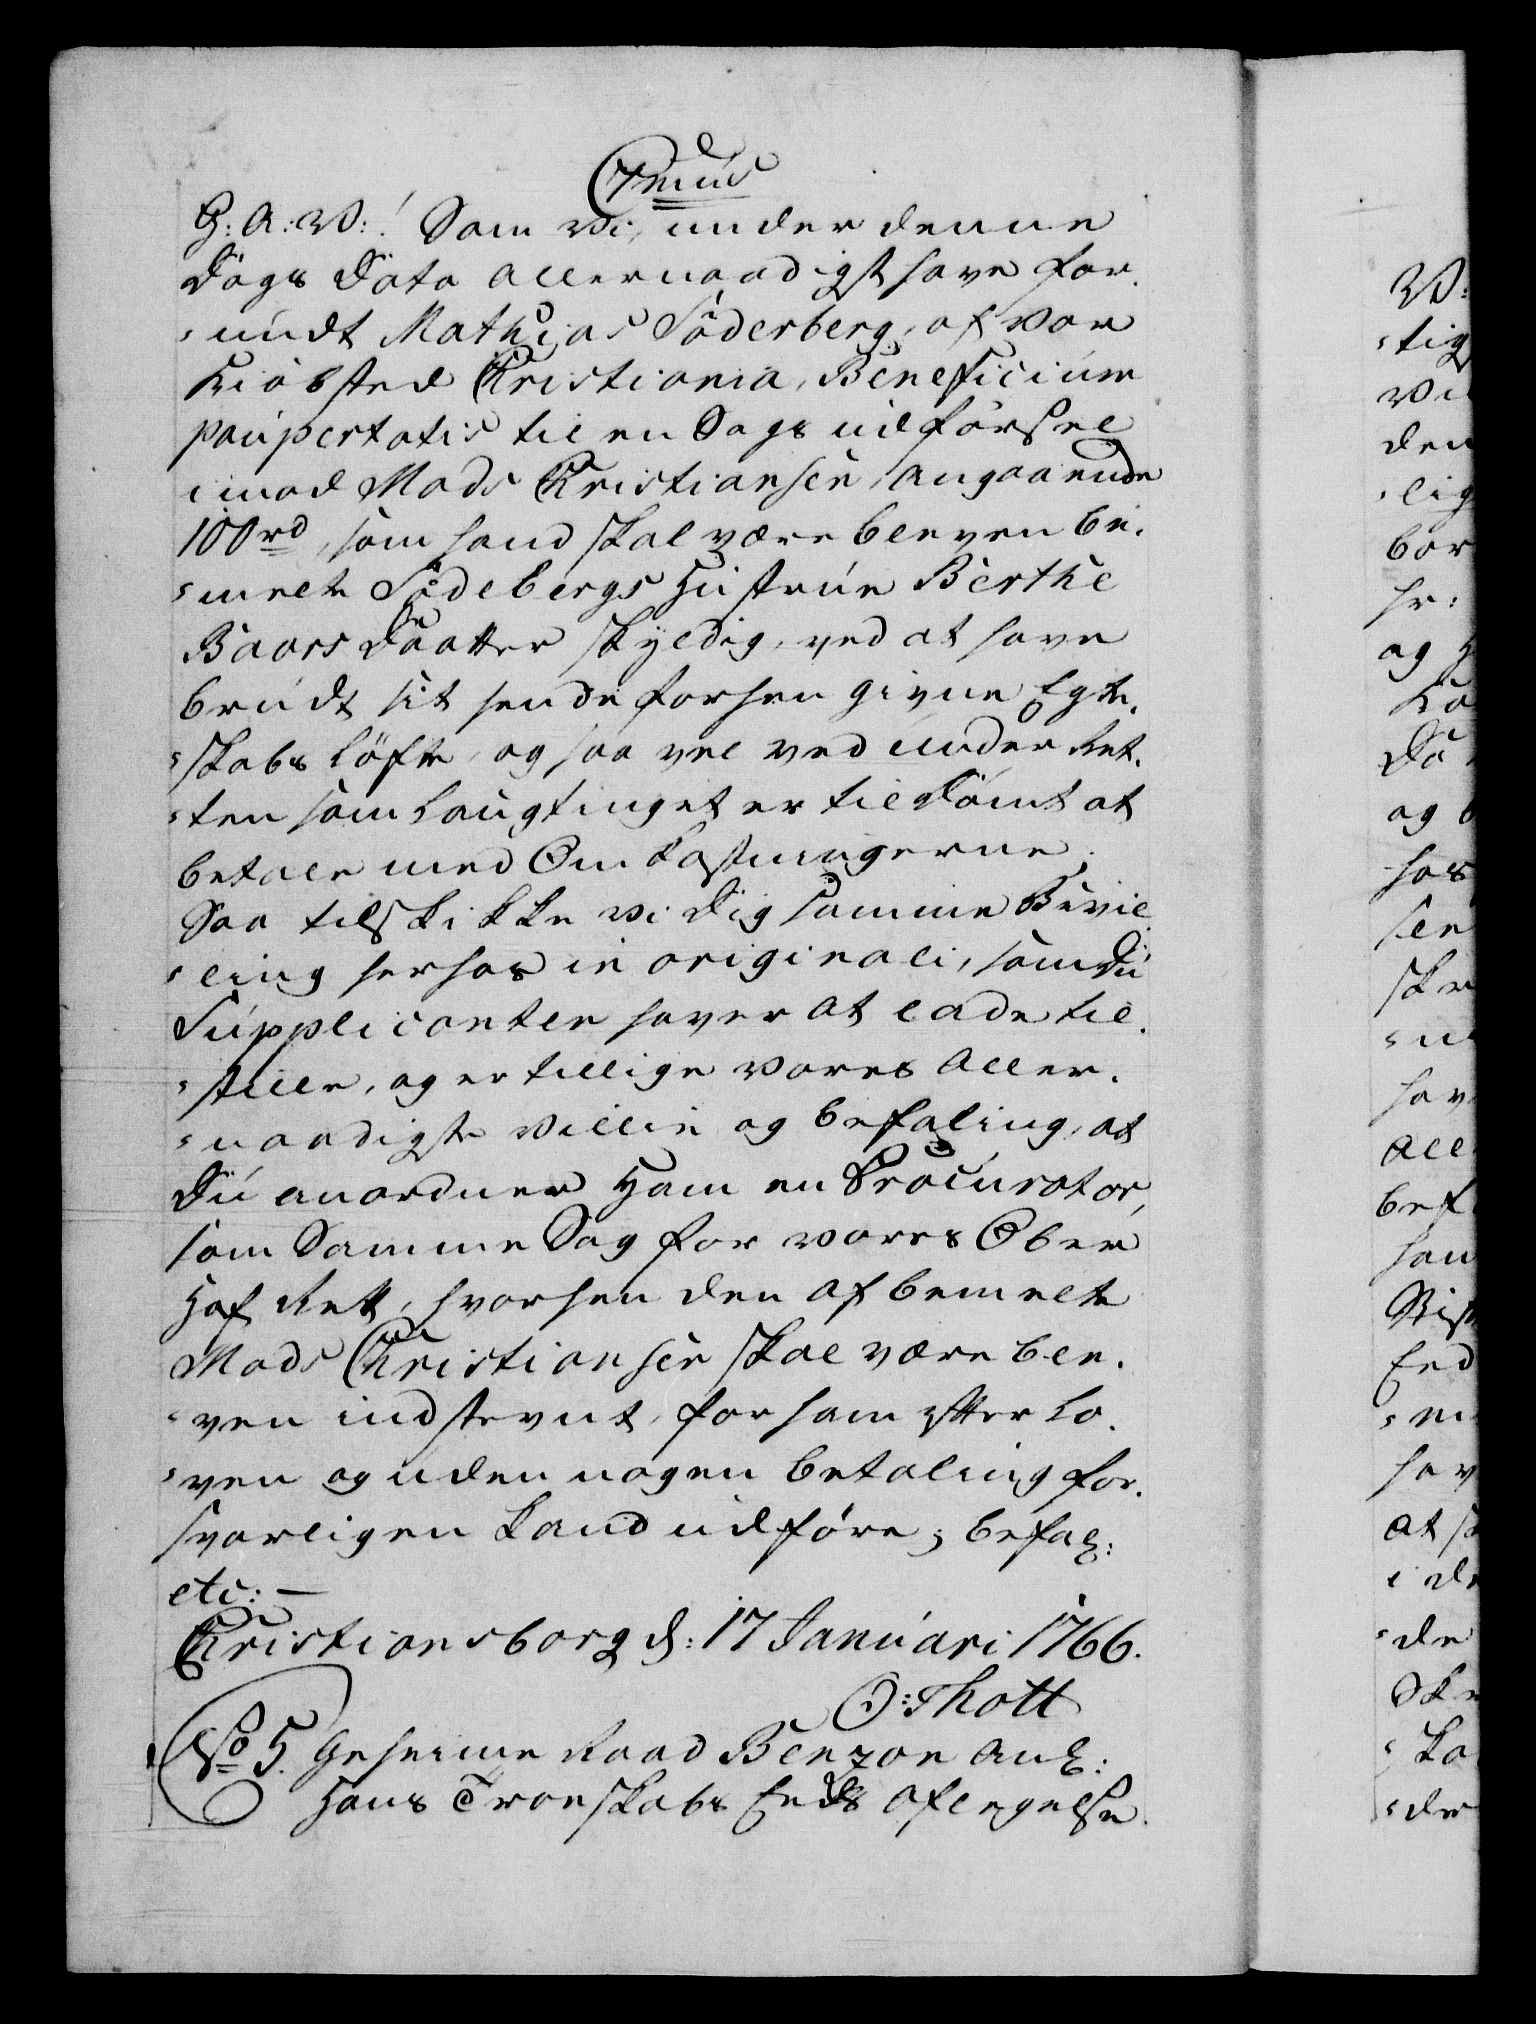 C7mus
G: A: W:! Som Vi, under denne
Dags Dato allernaadigst have for¬
undt Mathias Söderberg, af vor
Kiöbsted Christiania, Beneficium
paupertatis til en Sags udförsel
imod Mads Christiansen, angaaende
100rd, som hand skal være bleven be¬
melte Södebergs Hustrue Berthe
Baars Daatter skyldig, ved at have
brudt sit hende forhen givne Egte¬
skabs Löfte, og saa vel ved Under Ret¬
ten som Laugtinget er tildömt at
betale med Omkostningerne;
Saa tilskikke vi Dig samme Bevil¬
ling herhos in originali, som Du
Supplicanten haver at lade til¬
stille, og er tillige vores aller¬
naadigste Villie og befaling, at
Du anordner Ham en Procurator,
som Samme Sag for vores Ober
Hof Rett, hvorhen den af bemelte
Mads Christiansen skal være ble¬
ven indstevnt, for ham efter Lo¬
ven og uden nogen betaling for¬
svarligen kand udföre; befal:
etc: —
Christiansborg d: 17 Januari 1766.
O: Thott
No 5. Geheime Raad Benzon anl:
Hans Troeskabs Eeds aflegelse.
W:
tig
Vi
den
lig
bor
hr:
og H
Ko
Da
og b
hos
sen
skr
hav
All
bef
han
Bist
Eed
hav
at s
i de
de
Ske
ko
der